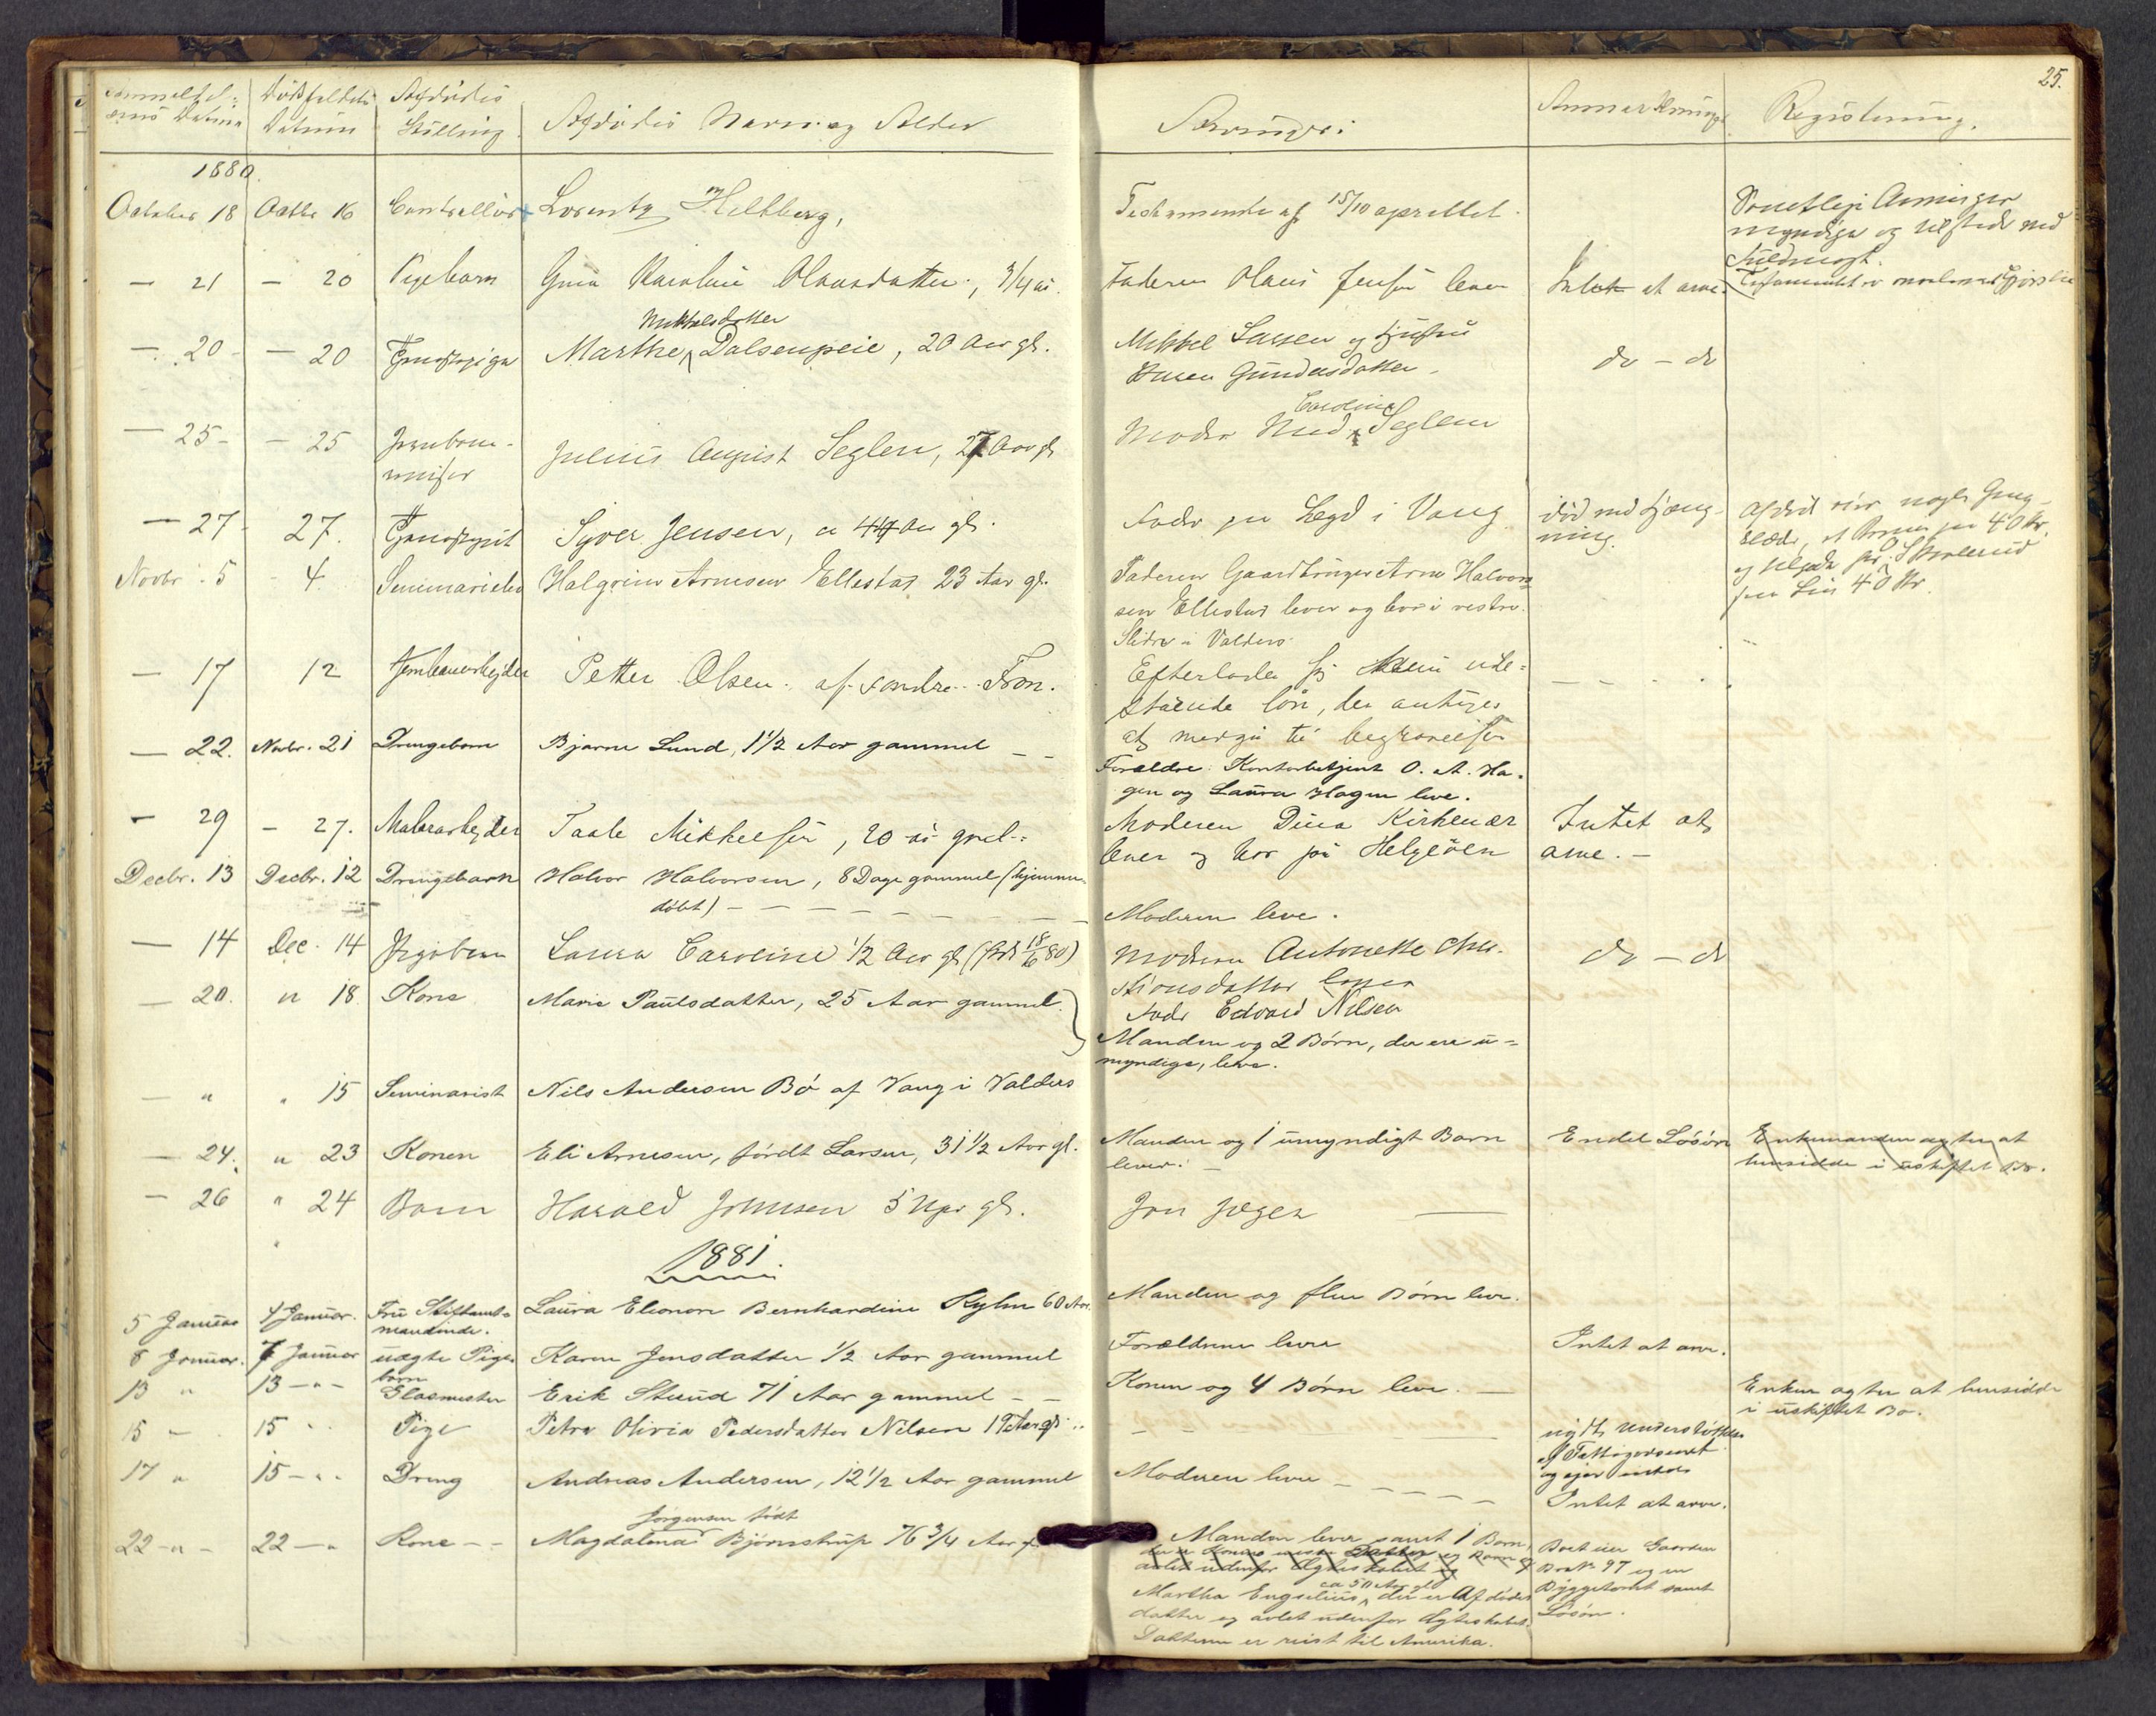 25.
Anmeldel-
sens Datum
Dödsfaldets
Datum
Afdödes
Stilling
Afdödes Navn og Alder
Arvinger:
Anmærkninger
Registrering.
1880.
October 18 Octbr 16 Contrallør Lorentz Heltberg,
Testamente af 15/10 oprettet.
myndige og tilstede ved
Fuldmagt.
— 21 — 20 Pigebarn Karoline Olausdatter, 3/4 aar.
Faderen Olaus Jensen lever
Intet at arve.
Mikkelsdatter
— 20 — 20 Tjenestepige Marthe Dalsenpeie, 20 Aar gl.
Mikkel Larsen og Hustru
Gundersdatter
do — do
— 25 — 25 Jernbane-
Julius August Seglen, 27 Aar gl
Caroline
Moder Mad. Seglem
— 27 27. Syver Jensen, ca 44 Aar gl.
Fader paa Legd i Vang
Novbr. 5 4. Seminarielev Halgrim Arnesen Ellestad 23 Aar gl.
Faderen Gaardbruger Arne Halvor-
sen Ellestad lever og bor i vestre
Slidre i Valders
— 17 12 Jernbanearbejder Petter Olsen af søndre Fron.
Efterlader sig kun ude-
stående lön, der antages
at medgå til begravelsen
— 22. Novbr. 21 Drengebarn Bjarne Lund, 1 1/2 Aar gammel — —
Forældre: Kontorbetjent O. A. Ha-
gen og Laura Hagen leve.
— 29 — 27. Malerarbejder Taale Mikkelsen, 20
Moderen Dina Kirkenær
lever og bor på Helgeöen
Intet at
arve. —
Decbr. 13 Decbr. 12 Drengebarn Halvor Halvorsen, 8 Dage gammel (hjemme-
döbt) — — — — — — —
Moderen lever.
— 14 Dec. 14 Pigebarn Laura Caroline 1/2 Aar gl (født 18/6 80)
Moderen Antonette Chri-
stiansdatter lever
Fader Edvard Nilsen
do — do
— 20. " 18. Kone Marie Paulsdatter, 25 Aar gammel.
Manden og 2 Börn, der ere u-
myndige, leve.
— " " 15 Seminarist Nils Andersen Bö af Vang i Valders
— 24. " 23 Konen Eli Arnesen, födt Larsen, 31 1/2 Aar gl.
Manden og 1 umyndigt Barn
lever. —
Endel Lösöre
Enkemanden agter at
hensidde i uskiftet Bo.
— 26 " 24 Barn Harald Johnsen 5 Uger gl.
1881
5 Januar 4 Januar. Fru Stiftamt-
mandinde.
Laura Elenore Bernhardine 60 Aar.
Manden og flere Börn lever.
8 Januar. 7 Januar uægte Pige-
barn
Karen Jensdatter 1/2 Aar gammel
Forældrene lever
Intet at arve.
13 " 13 — " — Glasmester Erik Strand 71 Aar gammel — —
Konen og 4 Börn leve. —
Enken agter at hensidde
i uskiftet Bo.
15 — 15 " Pige Petra Olivia Pedersdatter Nilsen 19 Aar gl.
nydt Understöttelse
af Fattigvæsenet
og ejer intet
17 " 15 — " Dreng Andreas Andersen, 12 1/2 Aar gammel
Moderen lever — — — — —
Intet at arve.
Jörgensen födt
22 — " — 22 — " Kone — — Magdalena Bjørnstrup 76 3/4 Aar gl
Manden lever samt 1 Barn,
avlet udenfor Ægteskabet
ca 50 Aar gl
Martha Engelius, der er Afdödes
datter og avlet udenfor Ægteskabet.
Datteren er reist til Amerika.
Boet eier Gaarden
Br.No 97 og en
Byggetomt samt
Lösöre.